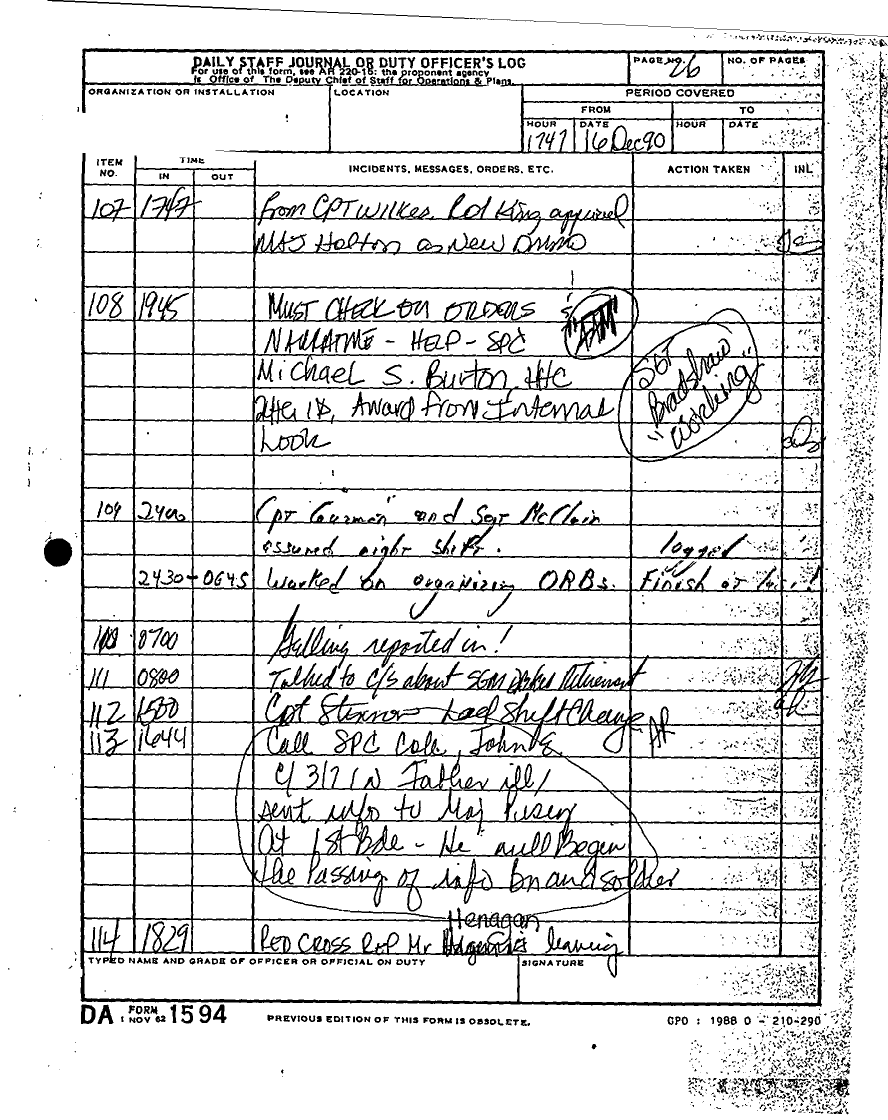 DAILY STAFF JOURNAL OR DUTY OFFICER'S LOG
For use of this form, see AR 220-15; the proponent agency
is Office of The Deputy Chief of Staff for Operations & Plans.
PAGE NO. 26
NO. OF PAGES
ORGANIZATION OR INSTALLATION
LOCATION
PERIOD COVERED
FROM
TO
HOUR DATE HOUR DATE
1747 16 Dec 90
ITEM NO.
TIME
IN OUT
INCIDENTS, MESSAGES, ORDERS, ETC.
ACTION TAKEN
INL
107 1747 From CPT Wilkes. Col King approved
MAJ Holton as New
108 1945 MUST CHECK ON ORDERS
NARRATIVE - HELP - SPC
Michael S. Burton, HHC
Award from Internal
Look
SGT
Bradshaw
"Working"
109 2400 Cpt "Guzman" and Sgt McClain
assumed night shift.
logged
2430-0645 Worked on organizing ORBs. Finish
110 0700 reported in!
111 0800 Talked to C/S about SGM Retirement
112 1500 Cpt had Shift Change
113 1644 Call SPC Cole, John E.
C/3/7 IN Father ill/
sent info to Maj Pusey
At 1st Bde - He will Begin
the Passing of info on and soldier
Henagan
114 1829 RED CROSS REP Mr leaving
TYPED NAME AND GRADE OF OFFICER OR OFFICIAL ON DUTY
SIGNATURE
DA FORM 1 NOV 62 1594
PREVIOUS EDITION OF THIS FORM IS OBSOLETE.
GPO : 1988 O - 210-290